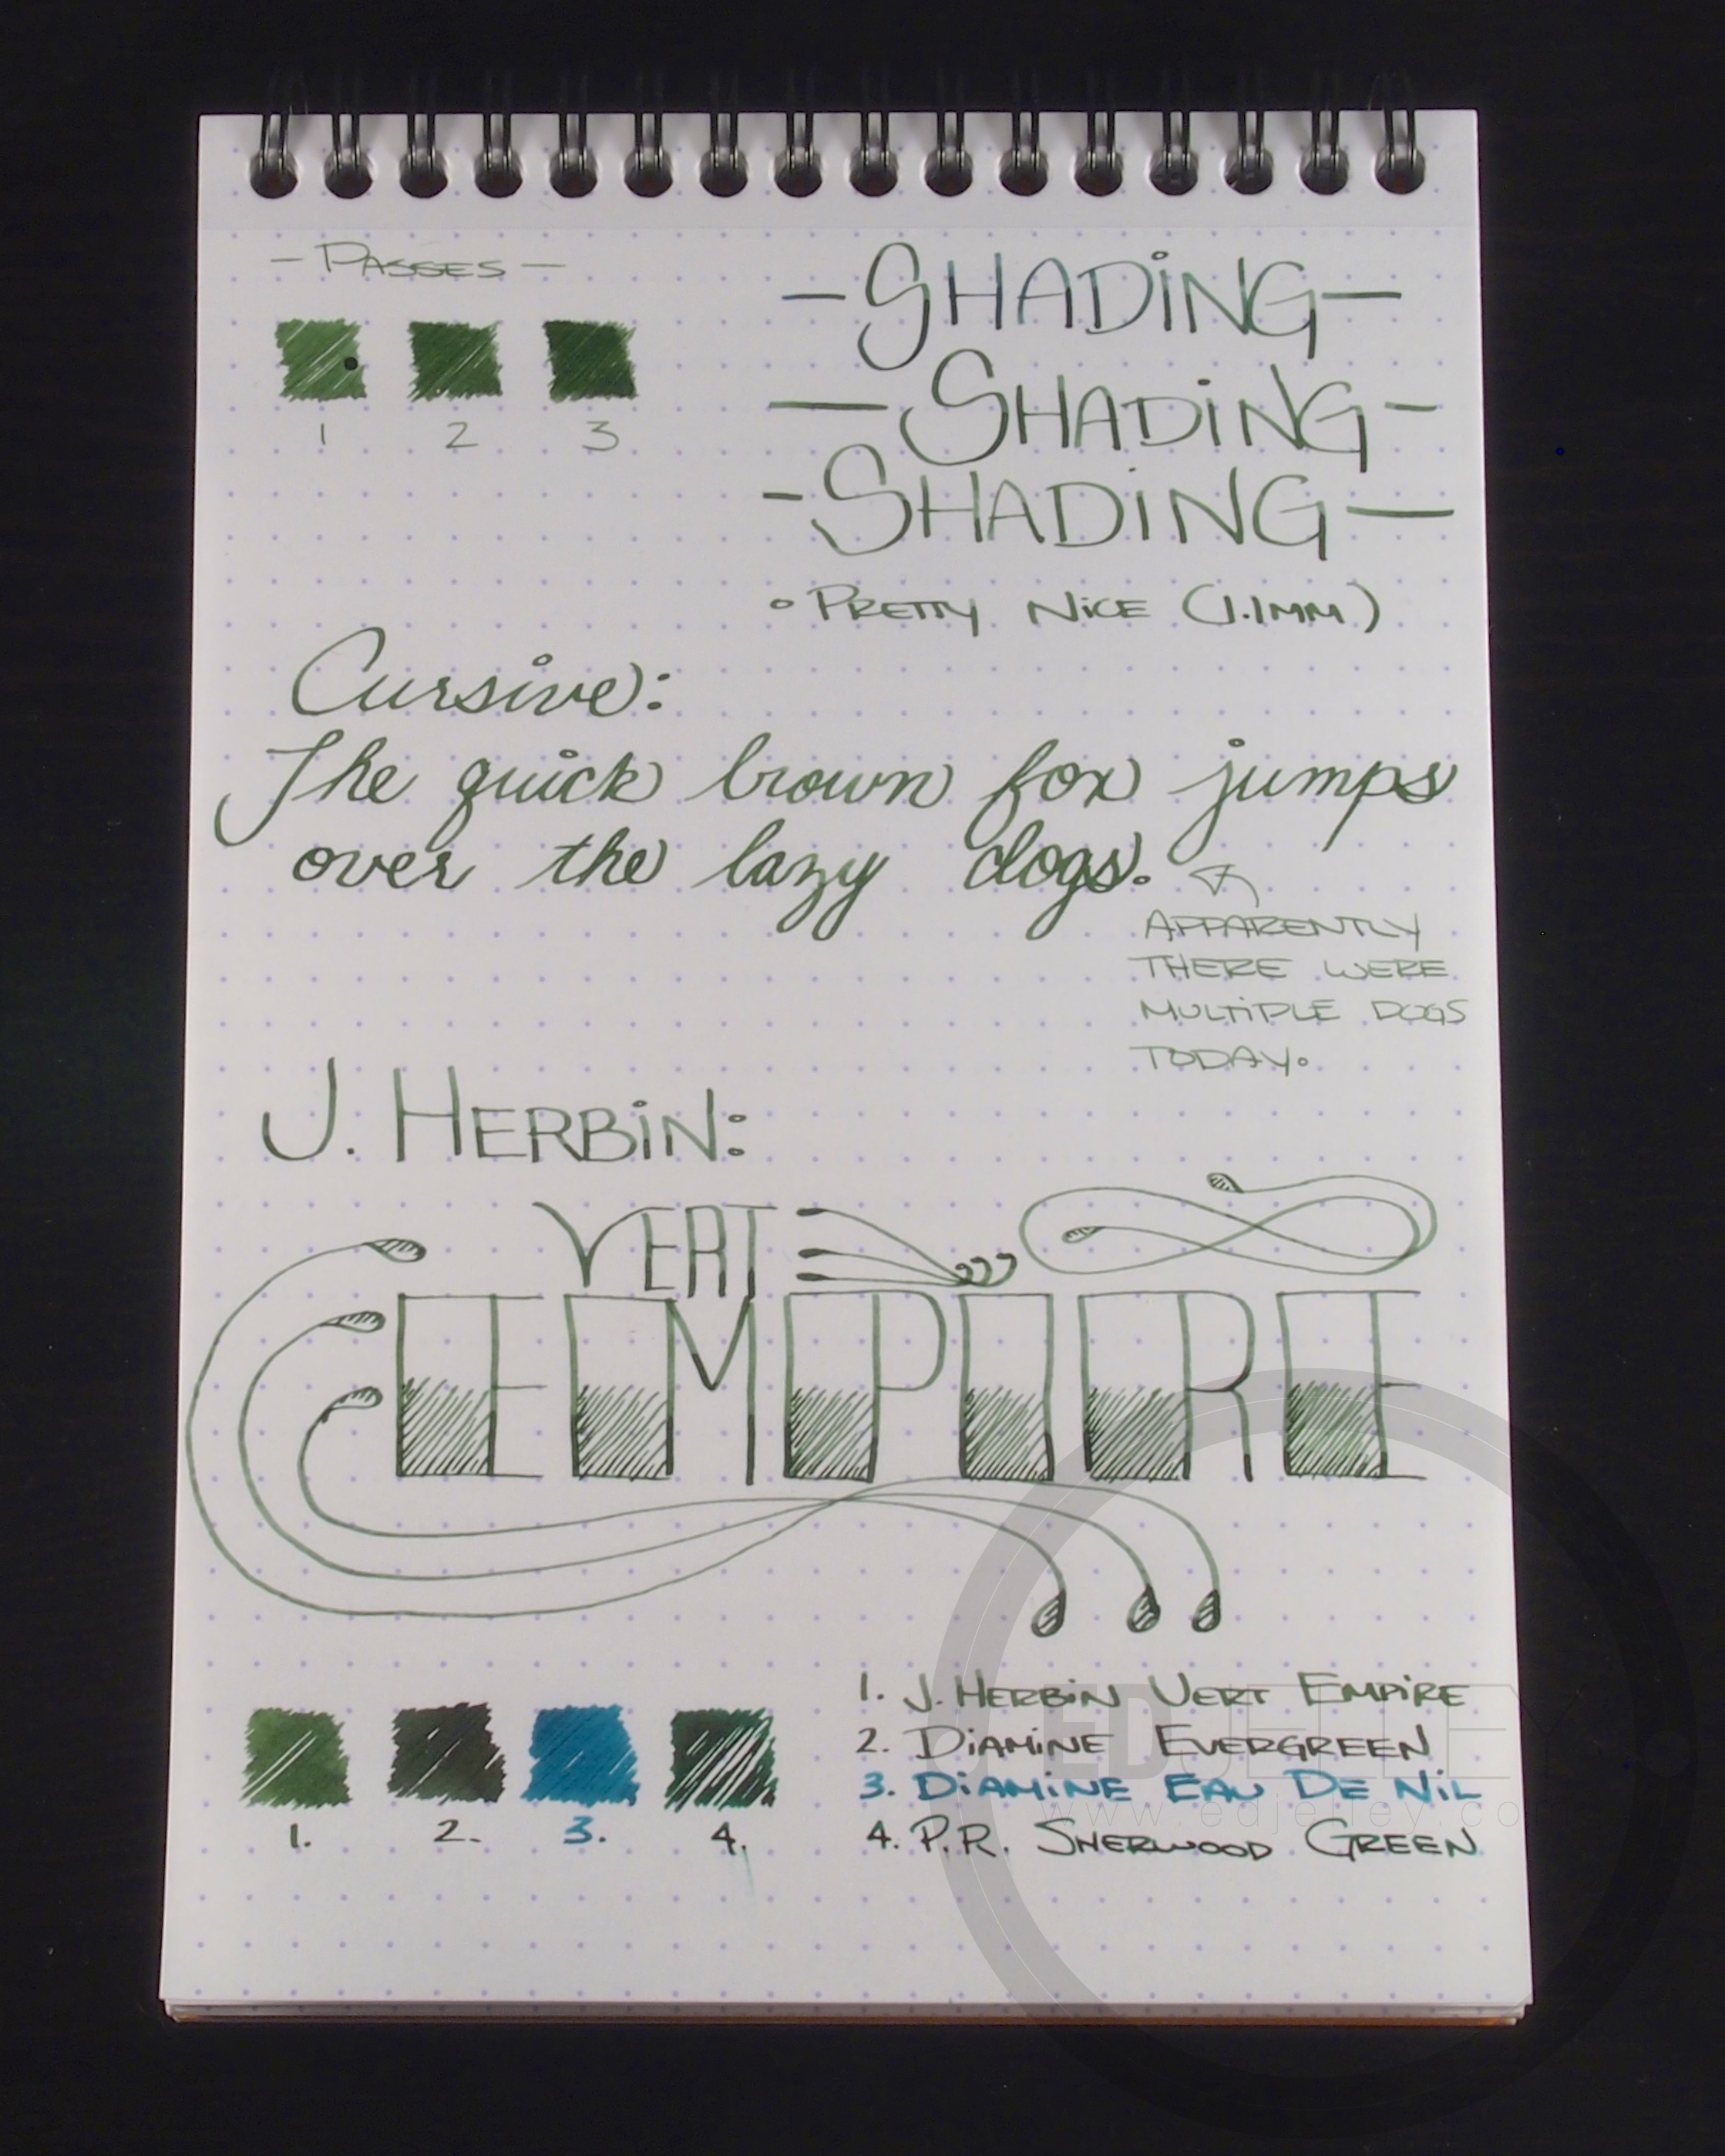 - PASSES -
1 2 3
- SHADING -
- SHADING -
- SHADING -
° PRETTY NICE (1.1MM)
Cursive:
The quick brown fox jumps
over the lazy dogs.
APPARENTLY
THERE WERE
MULTIPLE DOGS
TODAY.
J. HERBIN:
VERT
EMPIRE
1. 2. 3. 4.
1. J. HERBIN VERT EMPIRE
2. DIAMINE EVERGREEN
3. DIAMINE EAU DE NIL
4. P.R. SHERWOOD GREEN
ED JELLEY
www.edjelley.co